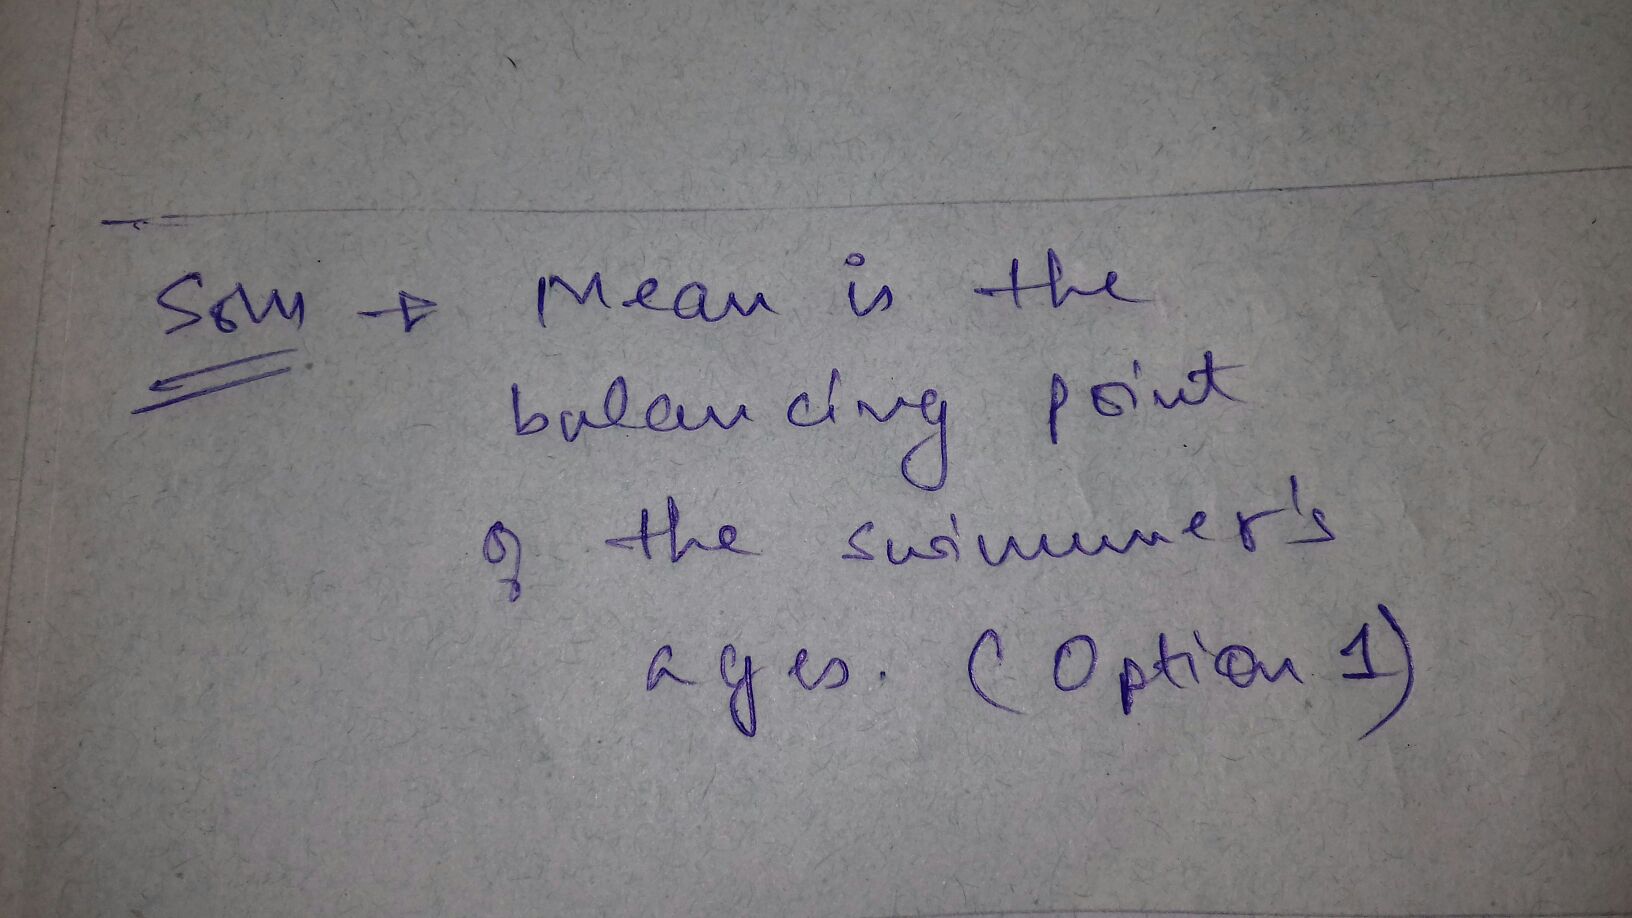 Soln → Mean is the
balancing point
of the swimmer's
ages. (Option 1)